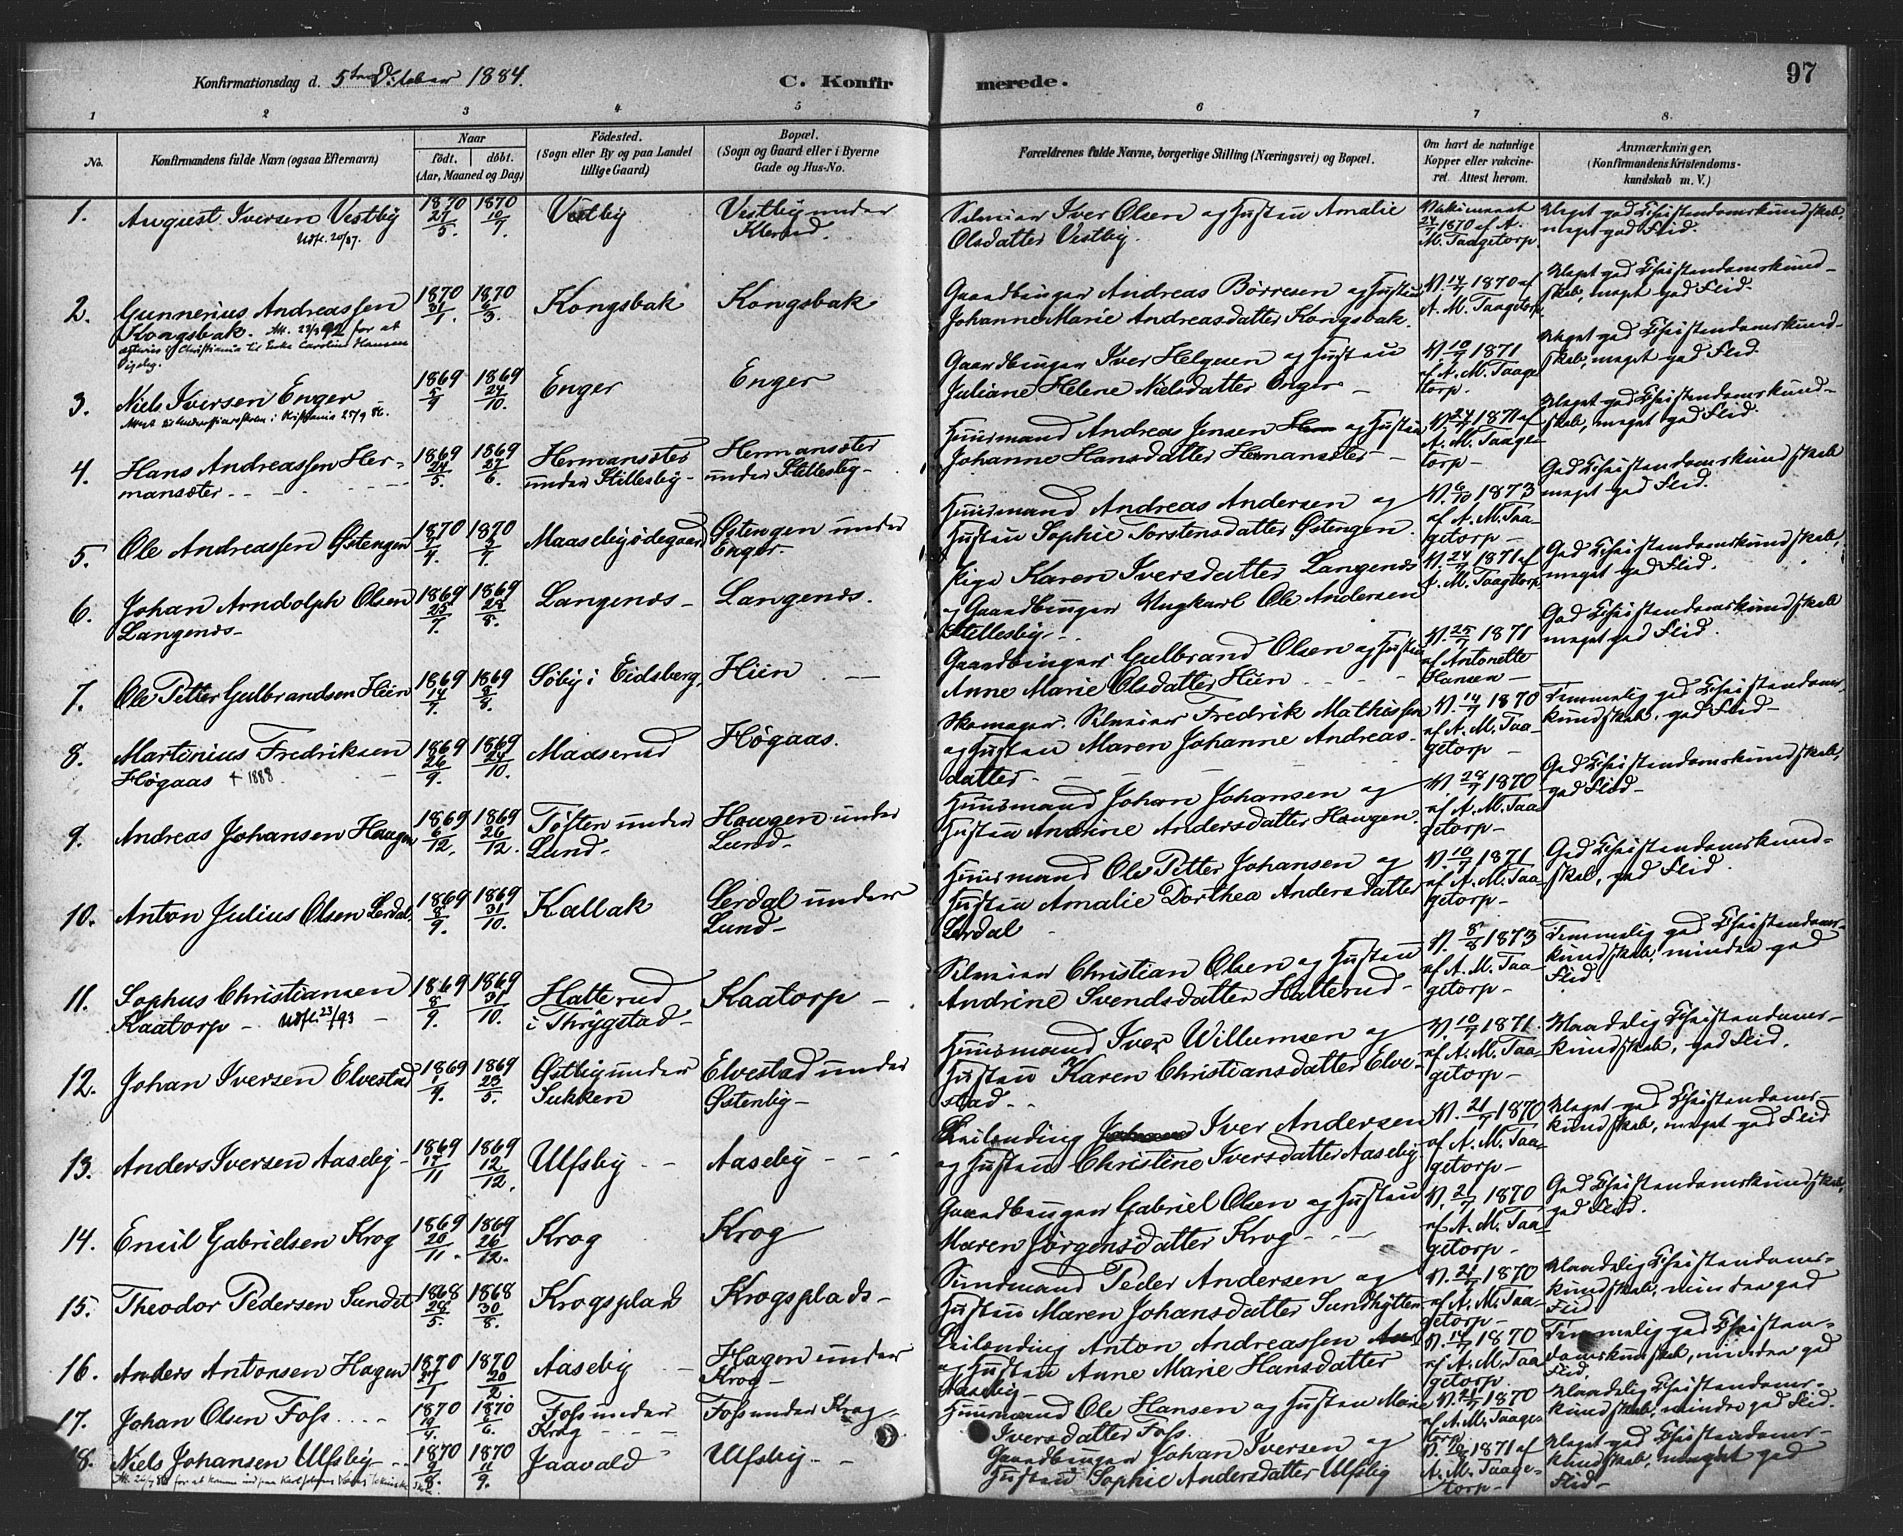 Konfirmationsdag d. 5te Oktober 1884.
C. Konfirmerede.
97
1 2 3 4 5 6 7 8.
No.
Konfirmandens fulde Navn (ogsaa Efternavn)
Naar
födt. döbt.
(Aar, Maaned og Dag)
Födested.
(Sogn eller By og paa Landet
tillige Gaard)
Bopæl.
(Sogn og Gaard eller i Byerne
Gade og Hus-No.
Forældrenes fulde Navne, borgerlige Stilling (Næringsvei) og Bopæl.
Om havt de naturlige
Kopper eller vakcine-
ret. Attest herom.
Anmærkninger.
(Konfirmandens Kristendoms-
kundskab m. V.)
1. August Iversen Vestby
Udfl. 20/87.
1870 27/5. 1870 10/7.
Vestby
Vestby under
Klerud.
Selveier Iver Olsen og Hustru Amalie
Olsdatter Vestby.
Vakcineret
24/7 1870 af A.
M. Taagetorp.
Meget god Christendomskundskab,
meget god Flid.
2. Gunnerius Andreassen
Kongsbak.
1870 31/1. 1870 6/3.
Kongsbak
Kongsbak
Gaardbruger Andreas Börresen og Hustru
Johanne Marie Andreasdatter Kongsbak.
V. 14/7 1870 af
A. M. Taagetorp.
Meget god Christendomskund-
skab, meget god Flid.
3. Niels Iversen Enger
1869 5/9 1869 24/10.
Enger
Enger
Gaardbruger Iver Helgesen og Hustru
Juliane Helene Nielsdatter Enger
V. 10/7 1871
af A. M. Taage-
torp.
Meget god Christendomskund-
skab, meget god Flid.
4. Hans Andreassen Her-
mansæter
1869 24/5. 1869 27/6.
Hermansæter
under Hillesby
Hermansæter
under Hillesby
Huusmand Andreas Jensen og Hustru
Johanne Hansdatter Hermansæter
V. 24/7 1871 af
A. M. Taage-
torp
Meget god Christendomskund-
skab, meget god Flid.
5. Ole Andreassen Østengen
1870 1870
Maasebyødegaard
Østengen under
Enger
Huusmand Andreas Andersen og
Hustru Sophie Torstensdatter Østengen.
V. 6/10 1873
af A. M. Taa-
getorp
God Christendomskundskab
meget god Flid.
6. Johan Arndolph Olsen
Langenes
1869 25/7. 1869 28/8.
Langenes
Langenes.
Pige Karen Iversdatter Langenes
og Gaardbruger Ungkarl Ole Andersen
Hillesby
V. 24/7 1871 af
A. M. Taagetorp
God Christendomskundskab,
meget god Flid.
7. Ole Petter Gulbrandsen Hien
1869 14/7. 1869 8/8.
Söby i Eidsberg,
Hien
Gaardbruger Gulbrand Olsen og Hustru
Anne Marie Olsdatter Hien
V. 25/7 1871
af Antonette
Hansen
God Christendomskundskab
meget god Flid.
8. Martinius Fredriksen
Høgaas † 1888
1869 26/9. 1869 24/10.
Maaserud
Høgaas.
Skomager, Selveier Fredrik Mathissen
og Hustru Maren Johanne Andreas-
datter
V. 14/7 1870
af A. M. Taa-
getorp
Temmelig god Christendoms-
kundskab, god Flid
9. Andreas Johansen Haugen
1869 6/12. 1869 26/12.
Toften under
Lund
Haugen under
Lund
Huusmand Johan Johansen og
Hustru Andrine Andersdatter Haugen.
V. 28/7 1870
af A. M. Taa-
getorp
God Christendomskundskab,
god Flid
10. Anton Julius Olsen Lerdal,
1869 8/9. 1869 31/10.
Kallak
Lerdal under
Lund
Huusmand Ole Petter Johansen og
Hustru Amalie Dorthea Andersdatter
Lerdal
V. 10/7 1871
af A. M. Taa-
getorp
God Christendomskund-
skab, god Flid.
11. Sophus Christiansen
Kaatorp Udfl. 23/93
1869 8/9. 1869 31/10.
Hatterud
i Thrygstad
Kaatorp
Selveier Christian Olsen og Hustru
Andrine Svendsdatter Hatterud
V. 8/8 1873
af A. M. Taa-
getorp
Temmelig god Christendoms-
kundskab, mindre god
Flid.
12. Johan Iversen Elvestad
1869 1/9. 1869 23/5.
Østby under
Sukken
Elvestad under
Østenby
Huusmand Iver Willumsen og
Hustru Karen Christiansdatter Elve-
stad
V. 10/7 1871.
af A. M. Taa-
getorp
Maadelig Christendoms-
kundskab, god Flid.
13. Anders Iversen Aaseby
1869 15/11 1869 12/12.
Ulfsby
Aaseby
Leilending Iver Andersen
og Hustru Christine Iversdatter Aaseby.
V. 21/7 1870
af A. M. Taa-
getorp
Meget god Christendoms-
kundskab, meget god Flid
14. Emil Gabrielsen Krog
1869 20/11. 1869 26/12.
Krog
Krog
Gaardbruger Gabriel Olsen og Hustru
Maren Jörgensdatter Krog
V. 21/7 1870
af A. M. Taa-
getorp
God Christendomskundskab,
god Flid.
15. Theodor Pedersen Sundet
1868 28/5. 1868 30/8.
Krogsplads
Krogsplads
Sundmand Peder Andersen og
Hustru Maren Johansdatter Sundhytten
V. 21/7 1870
af A. M. Taa-
getorp
Maadelig Christendoms-
kundskab, mindre god
Flid
16. Anders Antonsen Hagen
1870 27/1 1870 20/2.
Aaseby
Hagen under
Krog
Leilending Anton Andreassen
og Hustru Anne Marie Hansdatter
Aaseby
V. 14/7 1870
af A. M. Taa-
getorp.
Temmelig god Christen-
domskundskab, mindre god
Flid.
17. Johan Olsen Foss
1870 1870
Foss under
Krog
Foss under Krog
Huusmand Ole Hansen og Hustru Marie
Iversdatter Foss.
V. 21/7 1870
af A. M. Taage-
torp
Maadelig Christendoms-
kundskab, mindre god Flid.
18. Niels Johansen Ulfsby
1870 1870
Jaavald
Ulfsby
Gaardbruger Johan Iversen og
Hustru Sophie Andersdatter Ulfsby
V. 7/10 1871 af
A. M. Taage-
torp
Meget god Christendoms-
kundskab, meget god
Flid